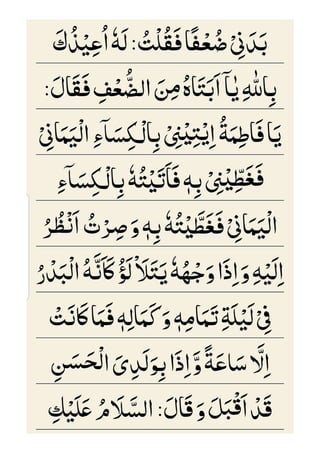 بَدَنِیْ ضُعْفًا فَقُلْتُ: لَهٗ اُعِیْذُكَ
بِاللهِ یَاۤ اَبَتَاهُ مِنَ الضُّعْفِ فَقَالَ:
یَا فَاطِمَةُ اِیْتِیْنِیْ بِالْكِسَاۤءِ الْیَمَانِیْ
فَغَطِّیْنِیْ بِهٖ فَاَتَیْتُهٗ بِالْكِسَاۤءِ
الْیَمَانِیْ فَغَطَّیْتُهٗ بِهٖ وَ صِرْتُ اَنْظُرُ
اِلَیْهِ وَ اِذَا وَجْهُهٗ یَتَلَاْلَؤُ كَاَنَّهُ الْبَدْرُ
فِیْ لَیْلَةِ تَمَامِهٖ وَ كَمَالِهٖ فَمَا كَانَتْ
اِلَّا سَاعَةً وَّ اِذَا بِوَلَدِیَ الْحَسَنِ
قَدْ اَقْبَلَ وَ قَالَ: السَّلَامُ عَلَیْكِ